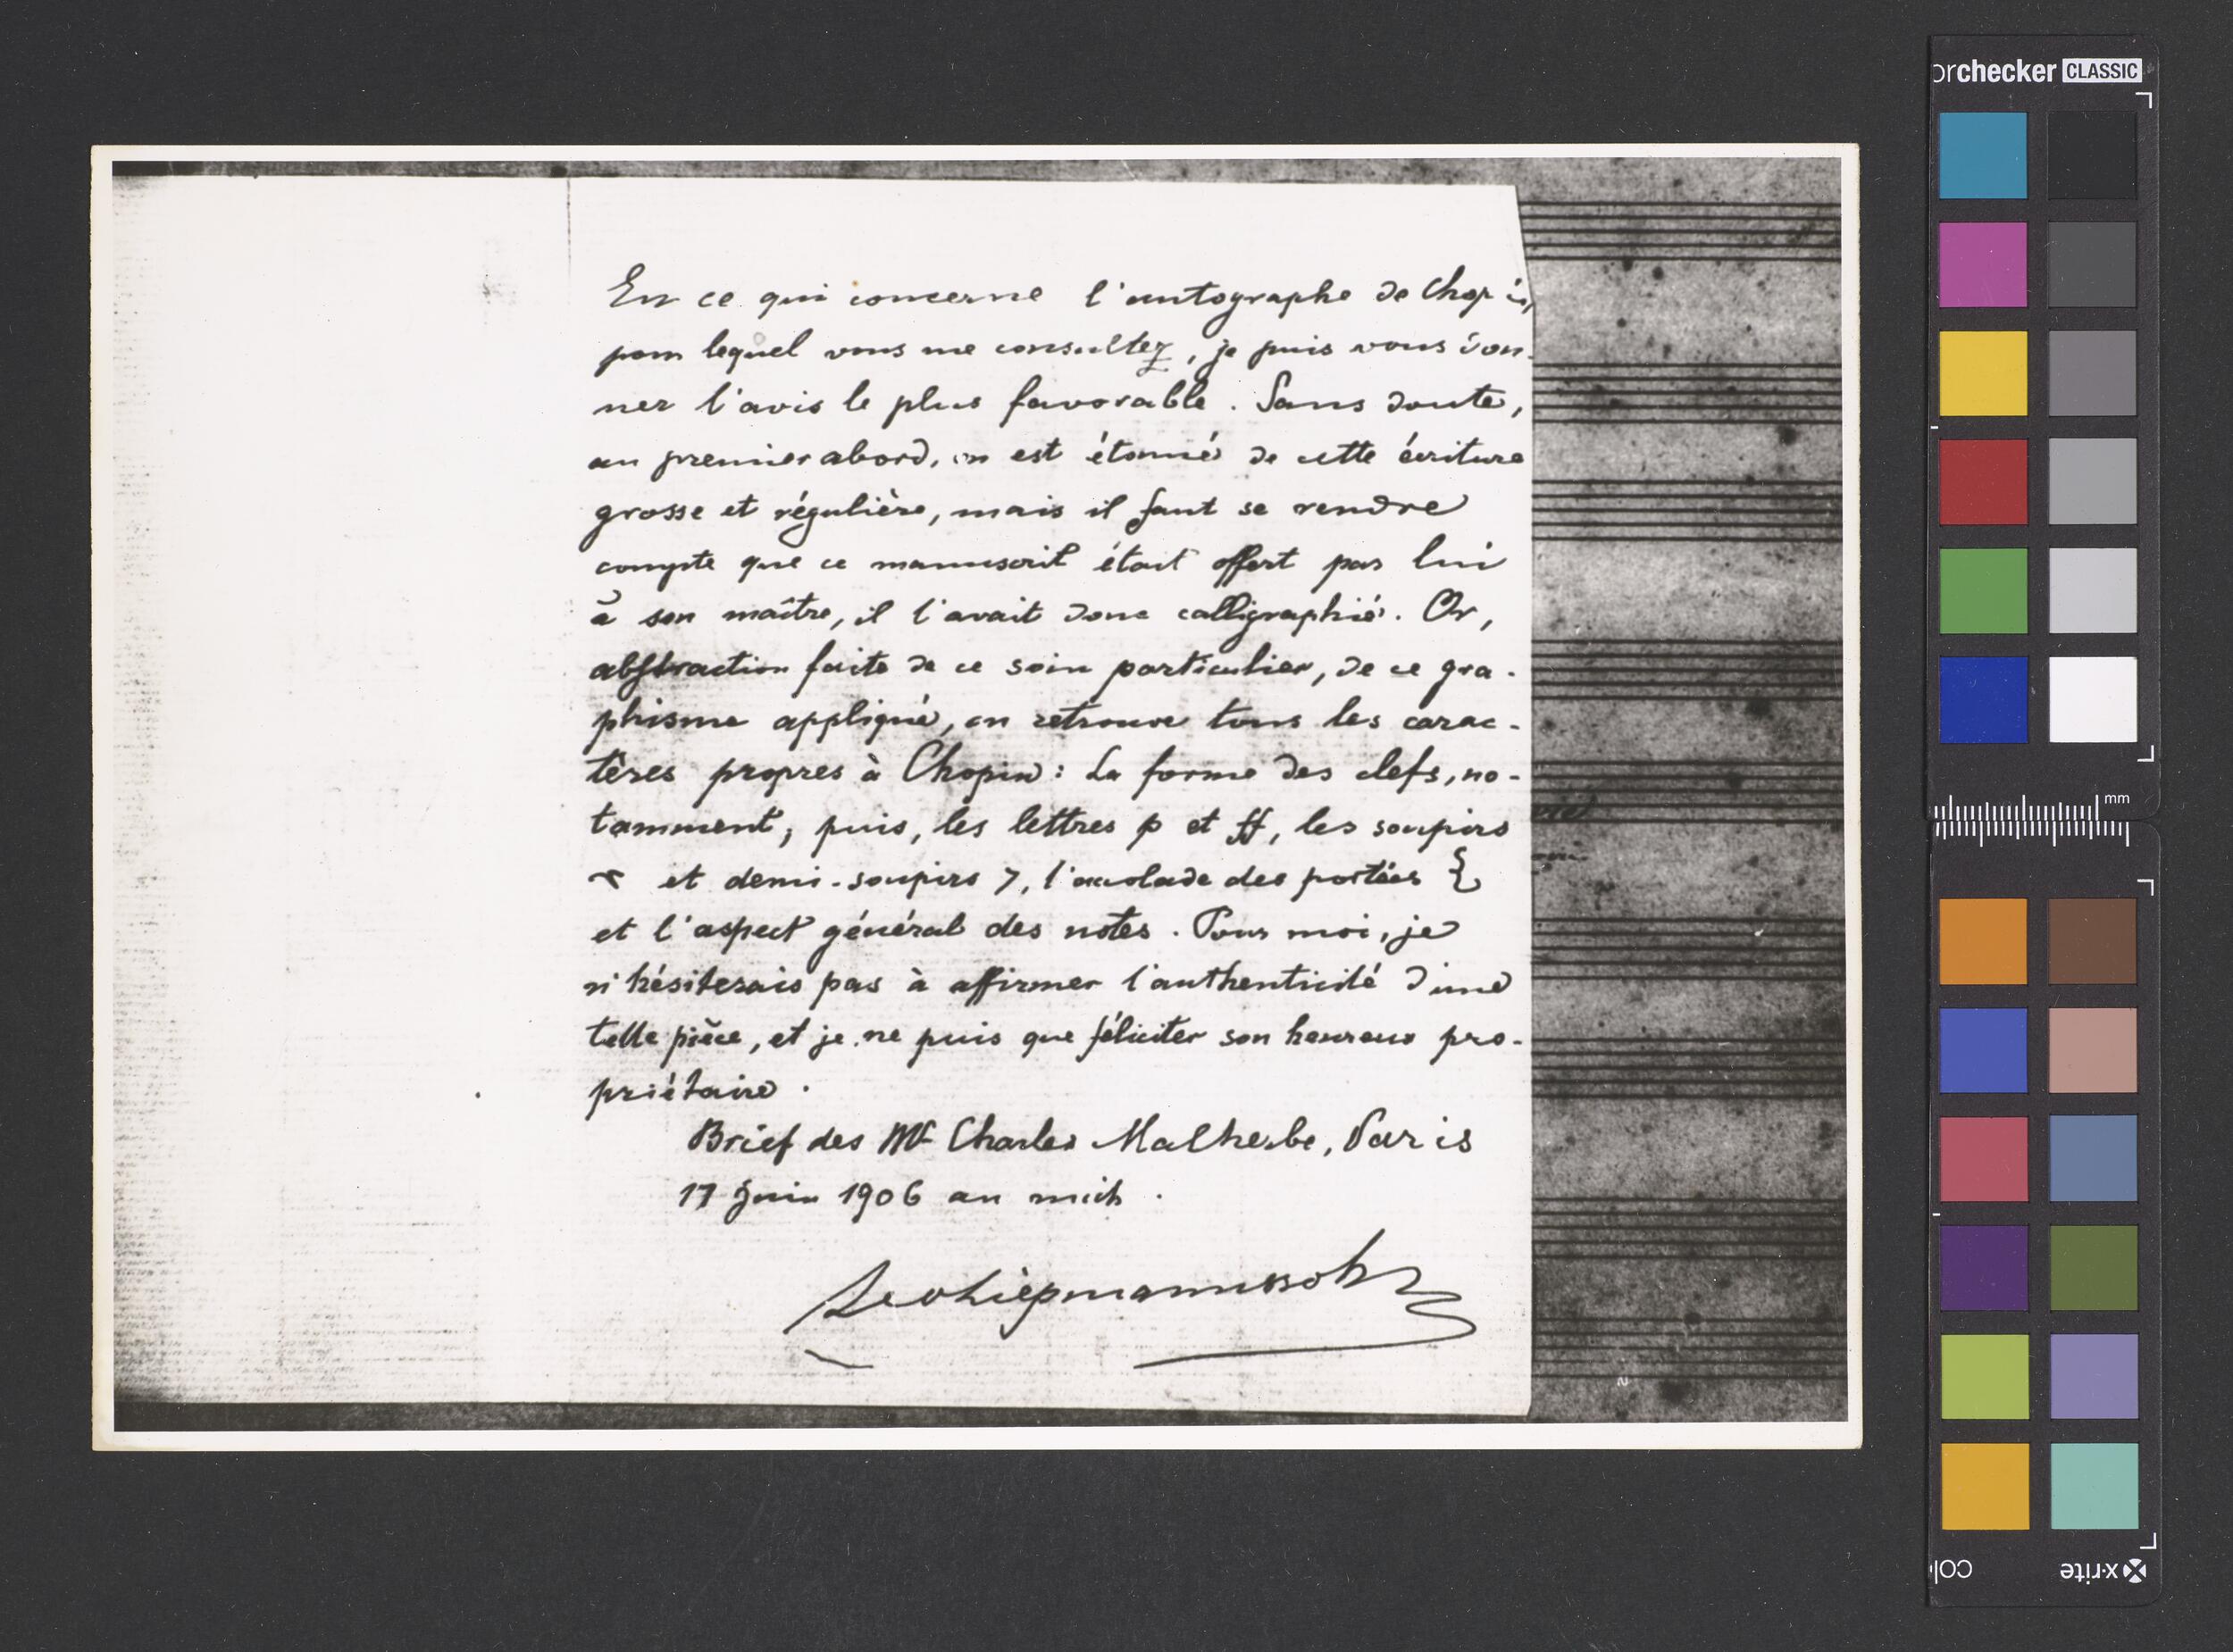 En ce qui concerne l'autographe de Chopin,
pour lequel vous me consultez, je puis vous don-
ner l'avis le plus favorable. Sans doute,
au premier abord, on est étonné de cette écriture
grosse et régulière, mais il faut se rendre
compte que ce manuscrit était offert par lui
à son maître, il l'avait donc calligraphié. Or,
abstraction faite de ce soin particulier, de ce gra-
phisme appliqué, on retrouve tous les carac-
tères propres à Chopin : La forme des clefs, no-
tamment, puis, les lettres p et ff, les soupirs
et demi-soupirs 7, l'accolade des portées {
et l'aspect général des notes. Pour moi, je
n'hésiterais pas à affirmer l'authenticité d'une
telle pièce, et je ne puis que féliciter son heureux pro-
priétaire.
Brief des Mr Charles Malherbe, Paris
17 Juin 1906 an mich.
Leo Liepmannssohn
orchecker CLASSIC
mm
colo
x-rite